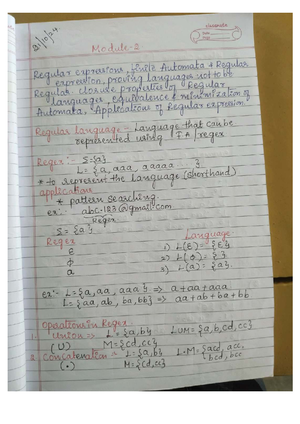 21/10/24
Module-2
Regular expressions, finite Automata & Regular
expression, proving languages not to be
Regular. closure properties of Regular
languages, equivalence & minimization of
Automata. Applications of Regular expression.
Regular language - Language that can be
represented using F.A / regex
Regex :- S={a}
L = {a, aaa, aaaaa }
* to represent the Language (shorthand)
applications
* pattern searching
ex:- abc.123@gmail.com
Regex
S = {a}
Regex Language
ε 1) L(ε) = {ε}
ϕ 2) L(ϕ) = { }
a 3) L(a) = {a}
Ex:- L={a, aa, aaa} ⇒ a+aa+aaa
L = {aa, ab, ba, bb} ⇒ aa+ab+ba+bb
Operations in Regex
1. Union ⇒ L={a,b} LUM={a,b,cd,cc}
(U) M={cd,cc}
2. Concatenation L={a,b} L•M={acd, acc,
(•) M={cd,cc} bcd, bcc